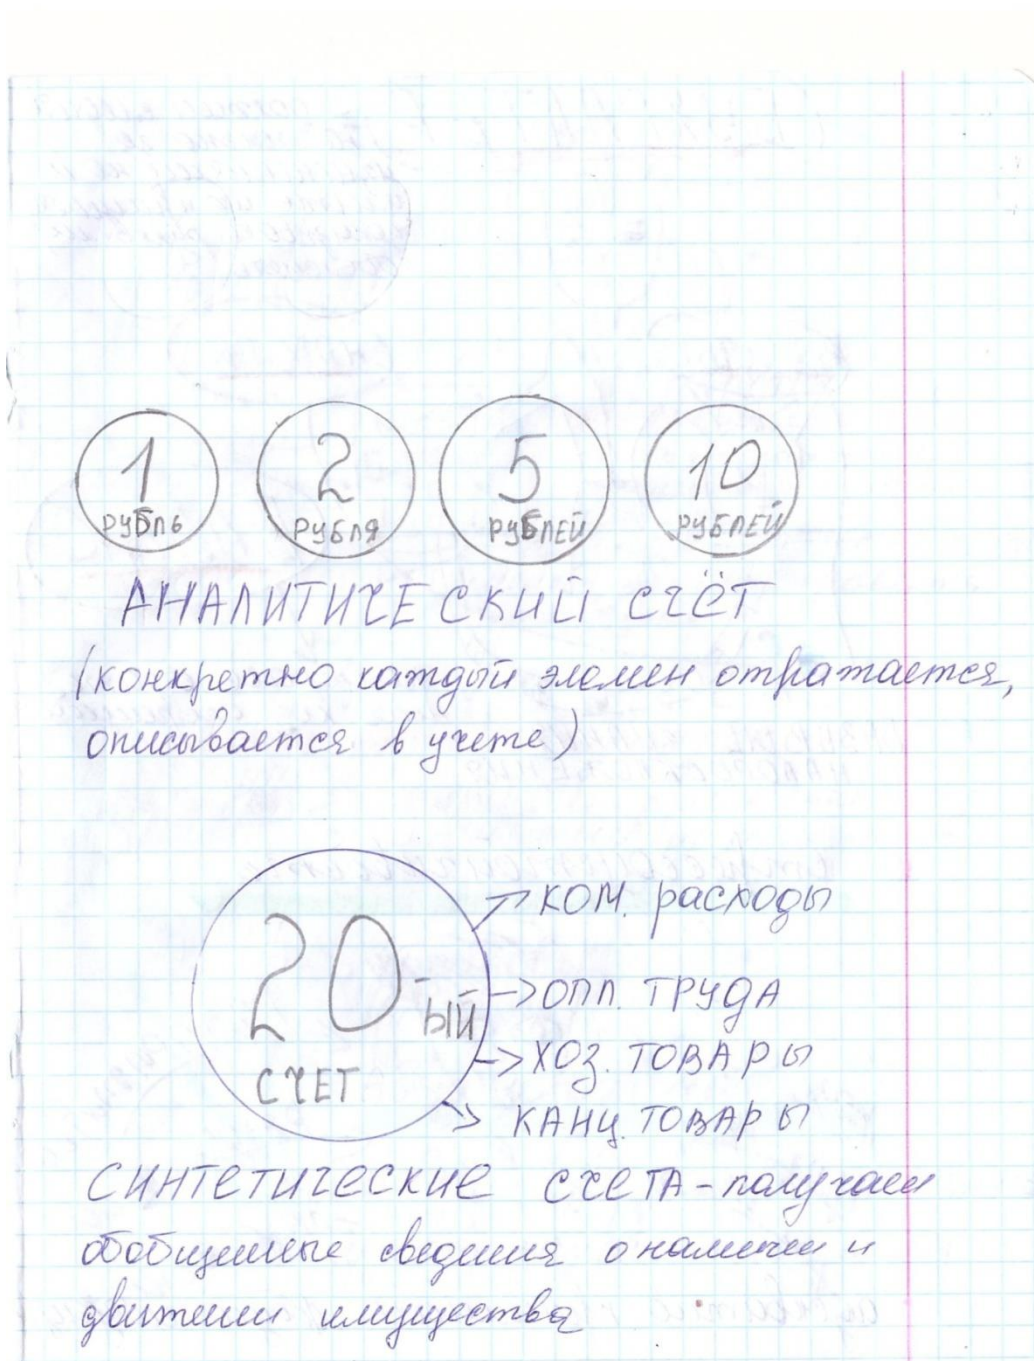 1 2 5 10
РУБЛЬ РУБЛЯ РУБЛЕЙ РУБЛЕЙ
АНАЛИТИЧЕСКИЙ СЧЁТ
(конкретно каждый элемен отражается,
описывается в учете)
20-ЫЙ
СЧЕТ
→ КОМ. расходы
→ ОПЛ. ТРУДА
→ ХОЗ. ТОВАРЫ
→ КАНЦ. ТОВАРЫ
СИНТЕТИЧЕСКИЕ СЧЕТА - получаем
обобщенные сведения о наличии и
движении имущества